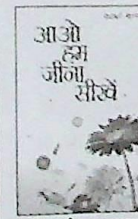 आओ
हम
जीना
सीखें